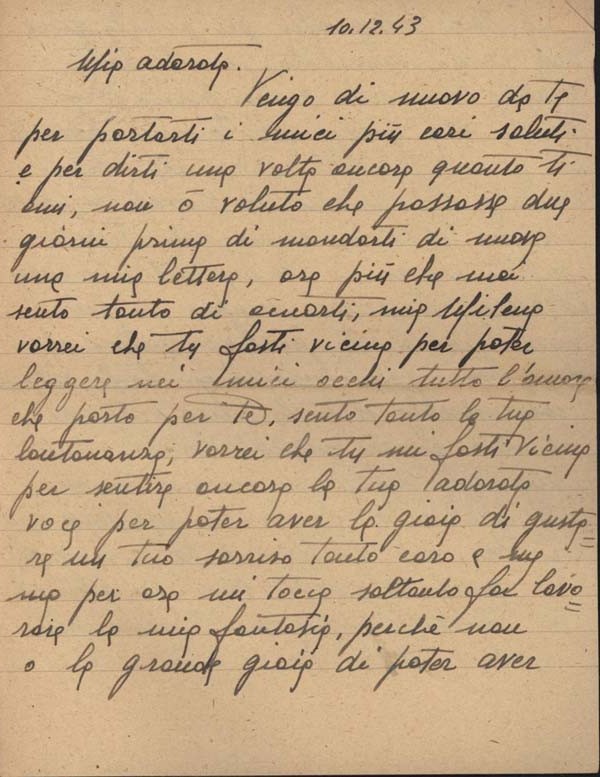 10.12.43
Mia adorata.
Vengo di nuovo da te
per portarti i miei più cari saluti
e per dirti una volta ancora quanto ti
ami, non ò voluto che passasse due
giorni prima di mandarti di nuovo
una mia lettera, ora più che mai
sento tanto di amarti, mia Milena
vorrei che tu fosti vicina per poter
leggere nei miei occhi tutto l'amore
che porto per te, sento tanto la tua
lontananza, vorrei che tu mi fosti vicina
per sentire ancora la tua adorata
voce per poter aver la gioia di gusta=
re un tuo sorriso tanto caro e
ma per ora mi tocca soltanto far lavo=
rare la mia fantasia, perchè non
o la grande gioia di poter aver